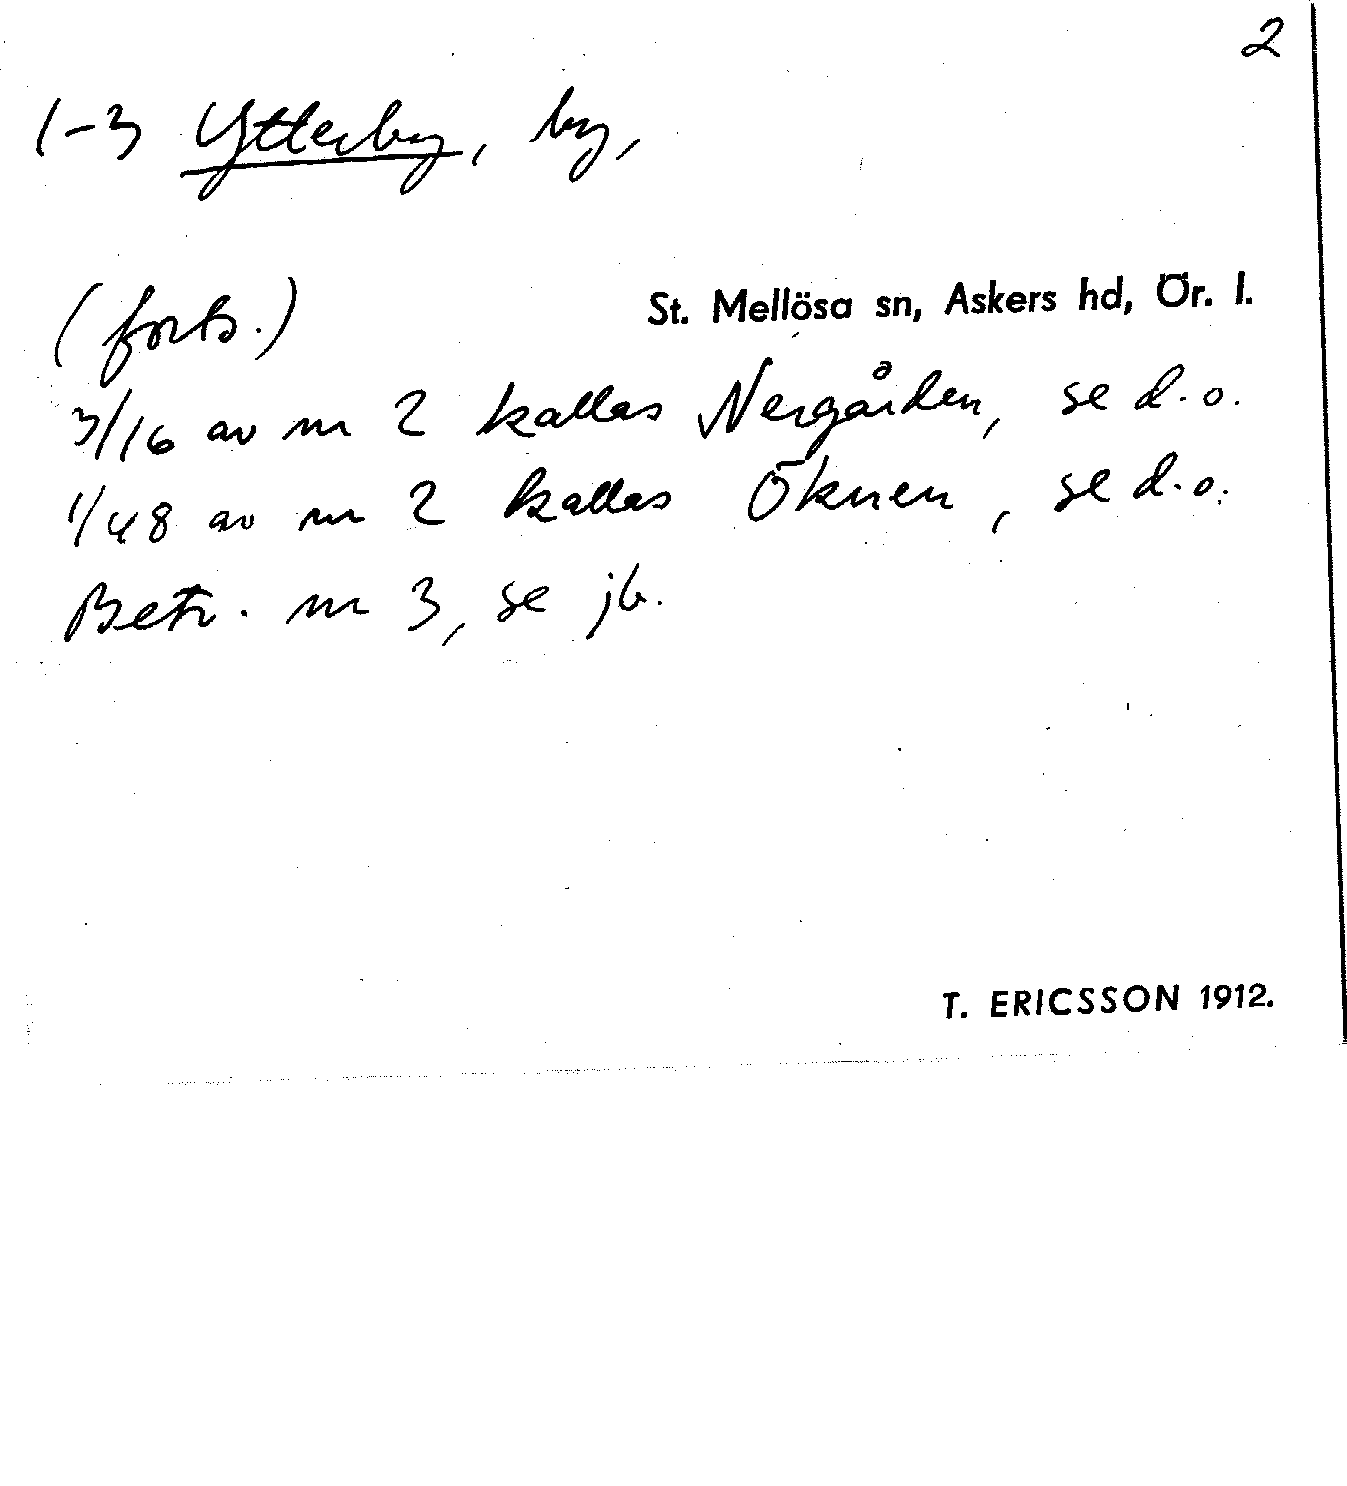 2
1-3 Ytterby, by,
(forts.)
St. Mellösa sn, Askers hd, Ör. l.
3/16 av nr 2 kallas Nergården, se d.o.
1/48 av nr 2 kallas Öknen, se d.o.
Betr. nr 3, se jb.
T. ERICSSON 1912.